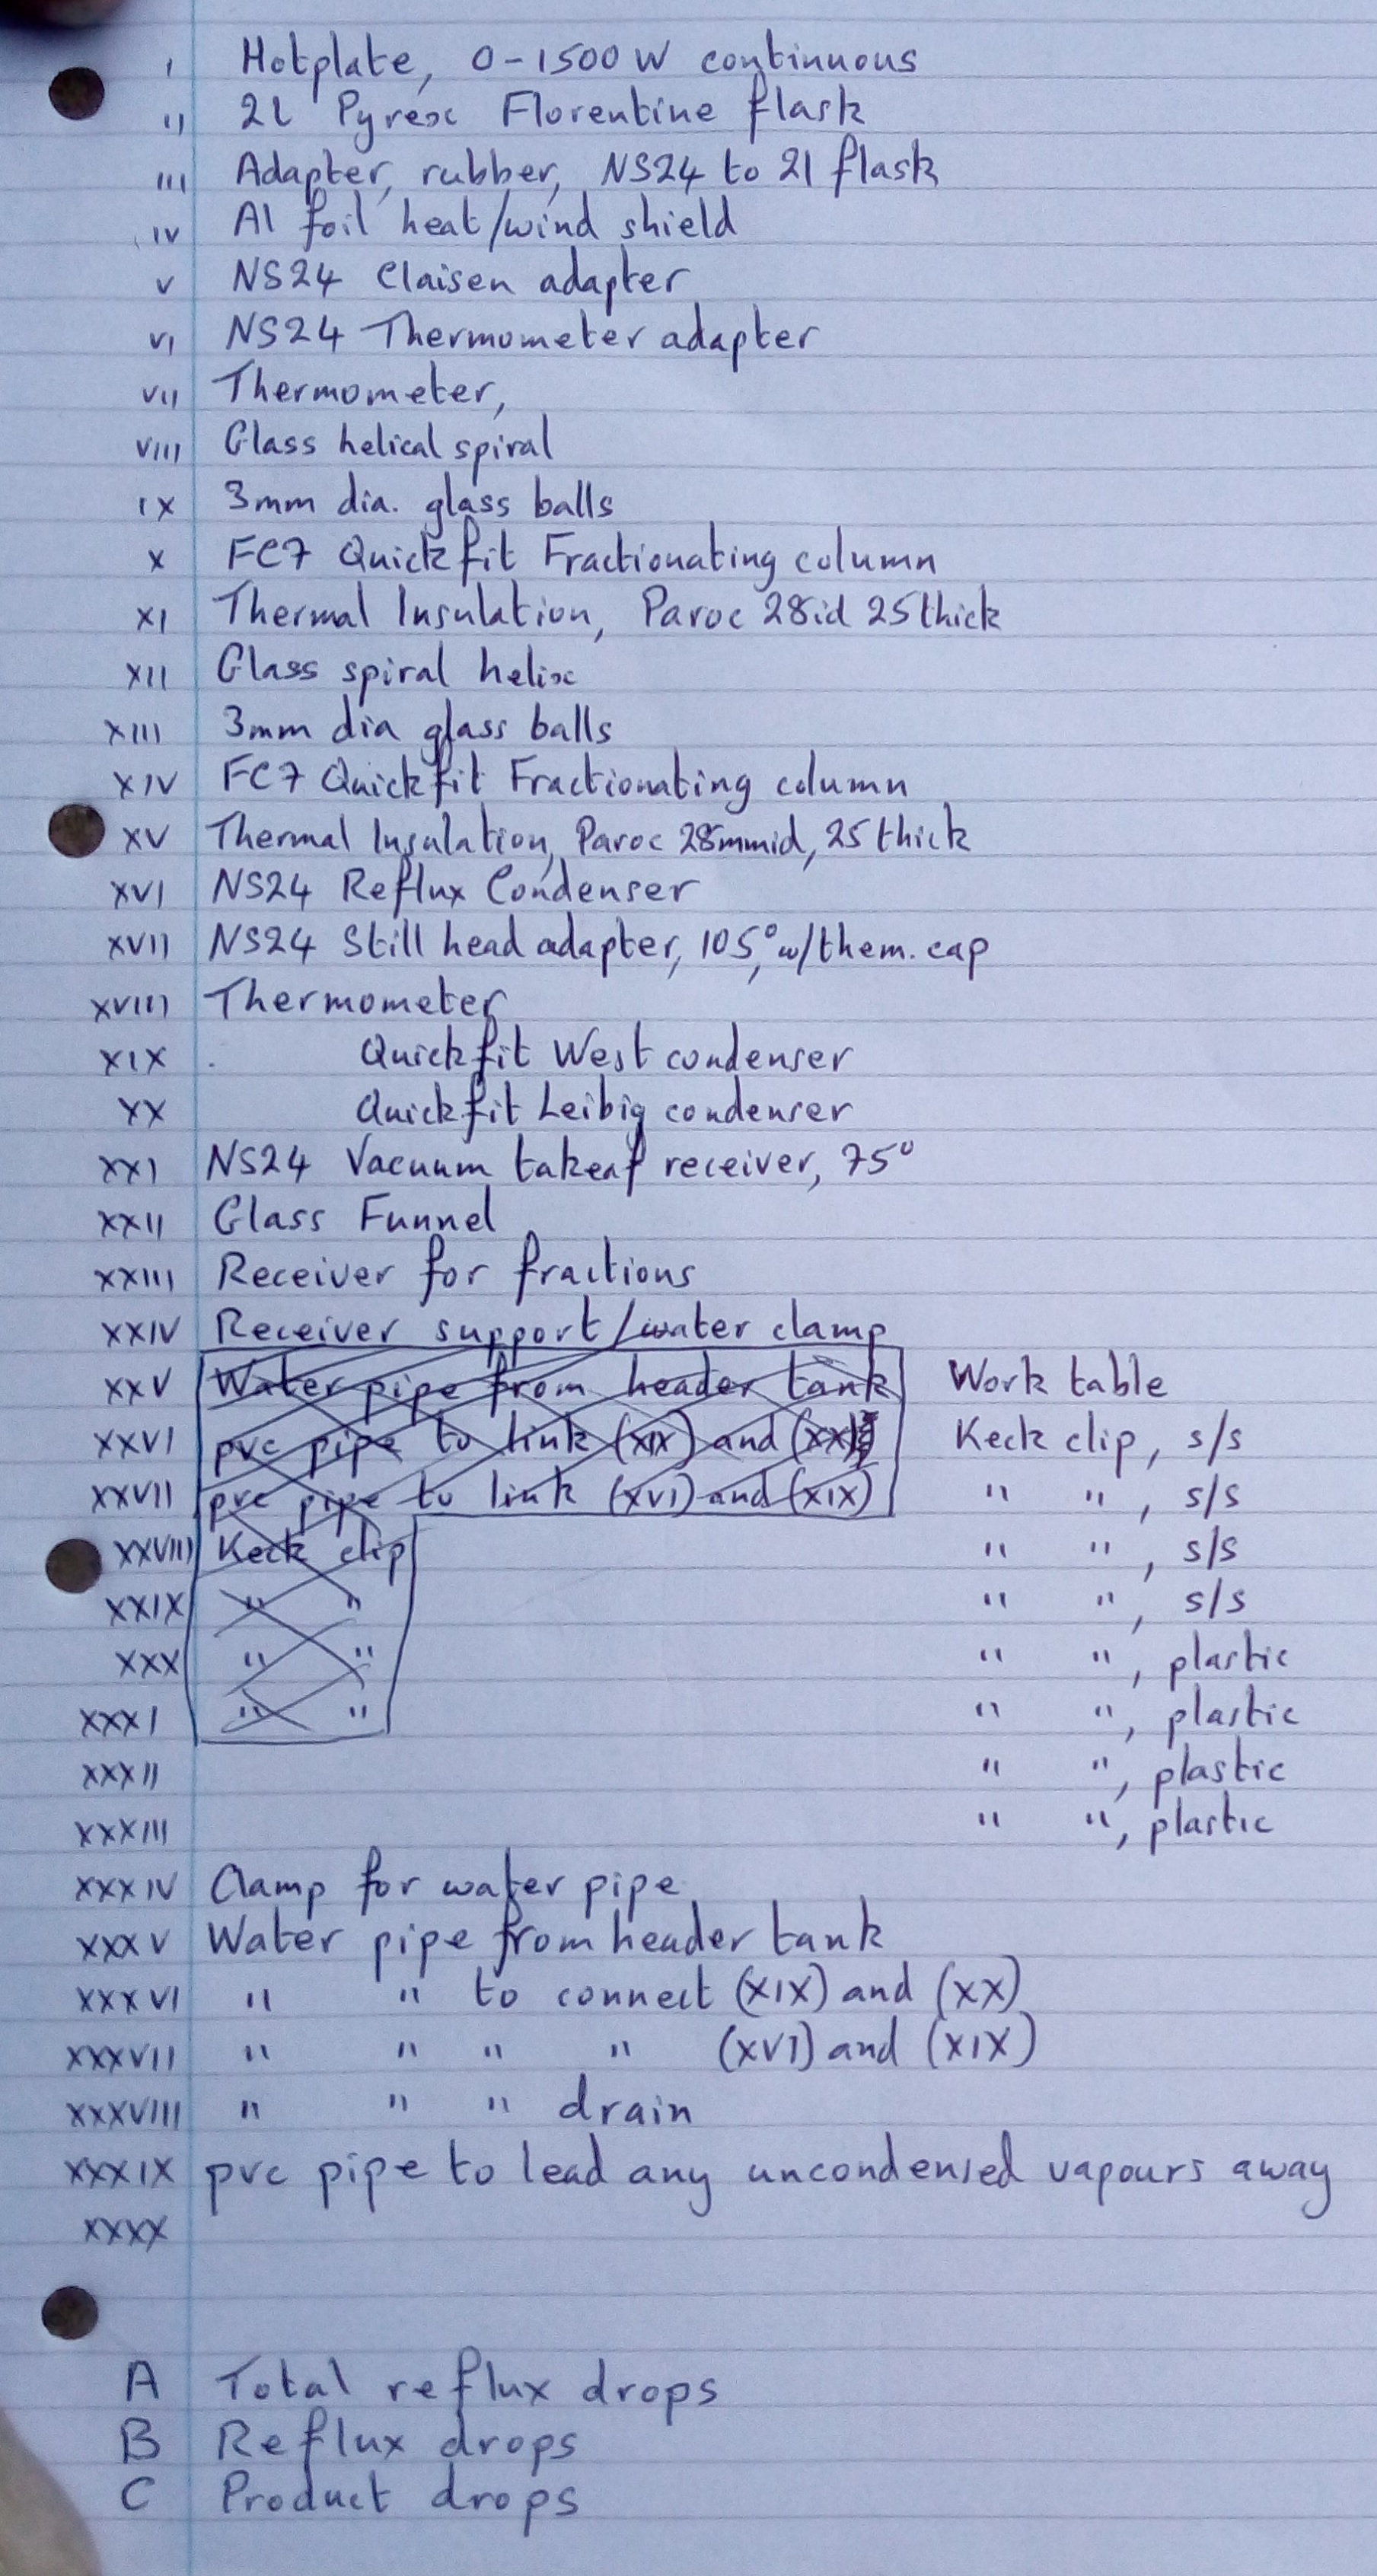 I Hotplate, 0-1500W continuous
II 2l Pyrex Florentine flask
III Adapter, rubber, NS24 to 2l flask
IV Al foil heat/wind shield
V NS24 Claisen adapter
VI NS24 Thermometer adapter
VII Thermometer,
VIII Glass helical spiral
IX 3mm dia. glass balls
X FC7 Quickfit Fractionating column
XI Thermal Insulation, Paroc 28id 25thick
XII Glass spiral helix
XIII 3mm dia glass balls
XIV FC7 Quickfit Fractionating column
XV Thermal Insulation, Paroc 28mmid, 25thick
XVI NS24 Reflux Condenser
XVII NS24 Still head adapter, 105°, w/them. cap
XVIII Thermometer
XIX Quickfit West condenser
XX Quickfit Leibig condenser
XXI NS24 Vacuum takeof receiver, 75°
XXII Glass Funnel
XXIII Receiver for fractions
XXIV Receiver support/water clamp
XXV Water pipe from header tank Work table
XXVI pvc pipe to link (XIX) and (XX) Keck clip, s/s
XXVII pvc pipe to link (XVI) and (XIX) " ", s/s
XXVIII Keck clip " ", s/s
XXIX " " " ", s/s
XXX " " " ", plastic
XXXI " " " ", plastic
XXXII " ", plastic
XXXIII " ", plastic
XXXIV Clamp for water pipe
XXXV Water pipe from header tank
XXXVI " " to connect (XIX) and (XX)
XXXVII " " " " (XVI) and (XIX)
XXXVIII " " " drain
XXXIX pvc pipe to lead any uncondensed vapours away
XXXX
A Total reflux drops
B Reflux drops
C Product drops